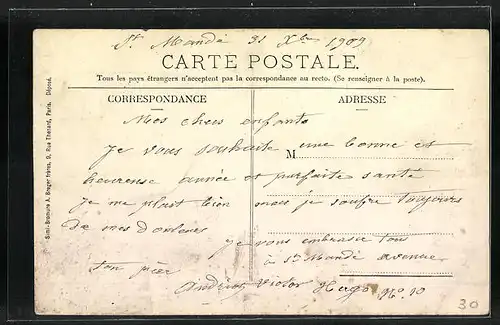 St Mandé 31 Xbre 1909
CARTE POSTALE.
Tous les pays étrangers n'acceptent pas la correspondance au recto. (Se renseigner à la poste).
CORRESPONDANCE
ADRESSE
Mes chers enfants
Je vous souhaite une bonne et
M
heureuse année et parfaite santé
je me plait bien mais je soufre toujours
de mes douleurs
je vous embrasse tous
à St Mandé avenue
ton pier
Victor Hugo No. 19
30
Simi-Bromure A. Breger frères, 9, Rue Thénard, Paris. Déposé.